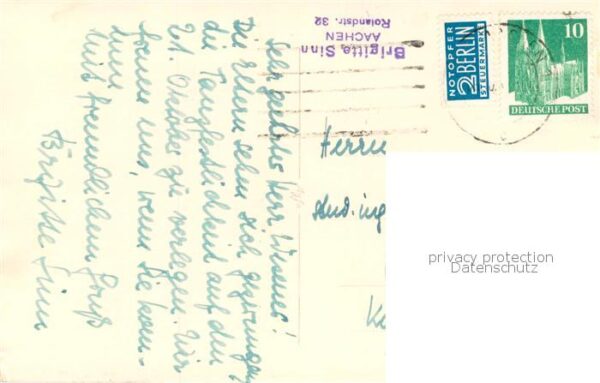 Sehr geehrter Herr Wismer!
Die Eltern sehen sich gezwungen
die Tanzfestlichkeit auf den
21. Oktober zu verlegen. Wir
freuen uns, wenn Sie kom-
men.
Mit freundlichem Gruß
Brigitte Sinn
Brigitte Sinn
AACHEN
Rolandstr. 32
NOTOPFER
2 BERLIN
STEUERMARKE
10
DEUTSCHE POST
Herrn
privacy protection
Datenschutz